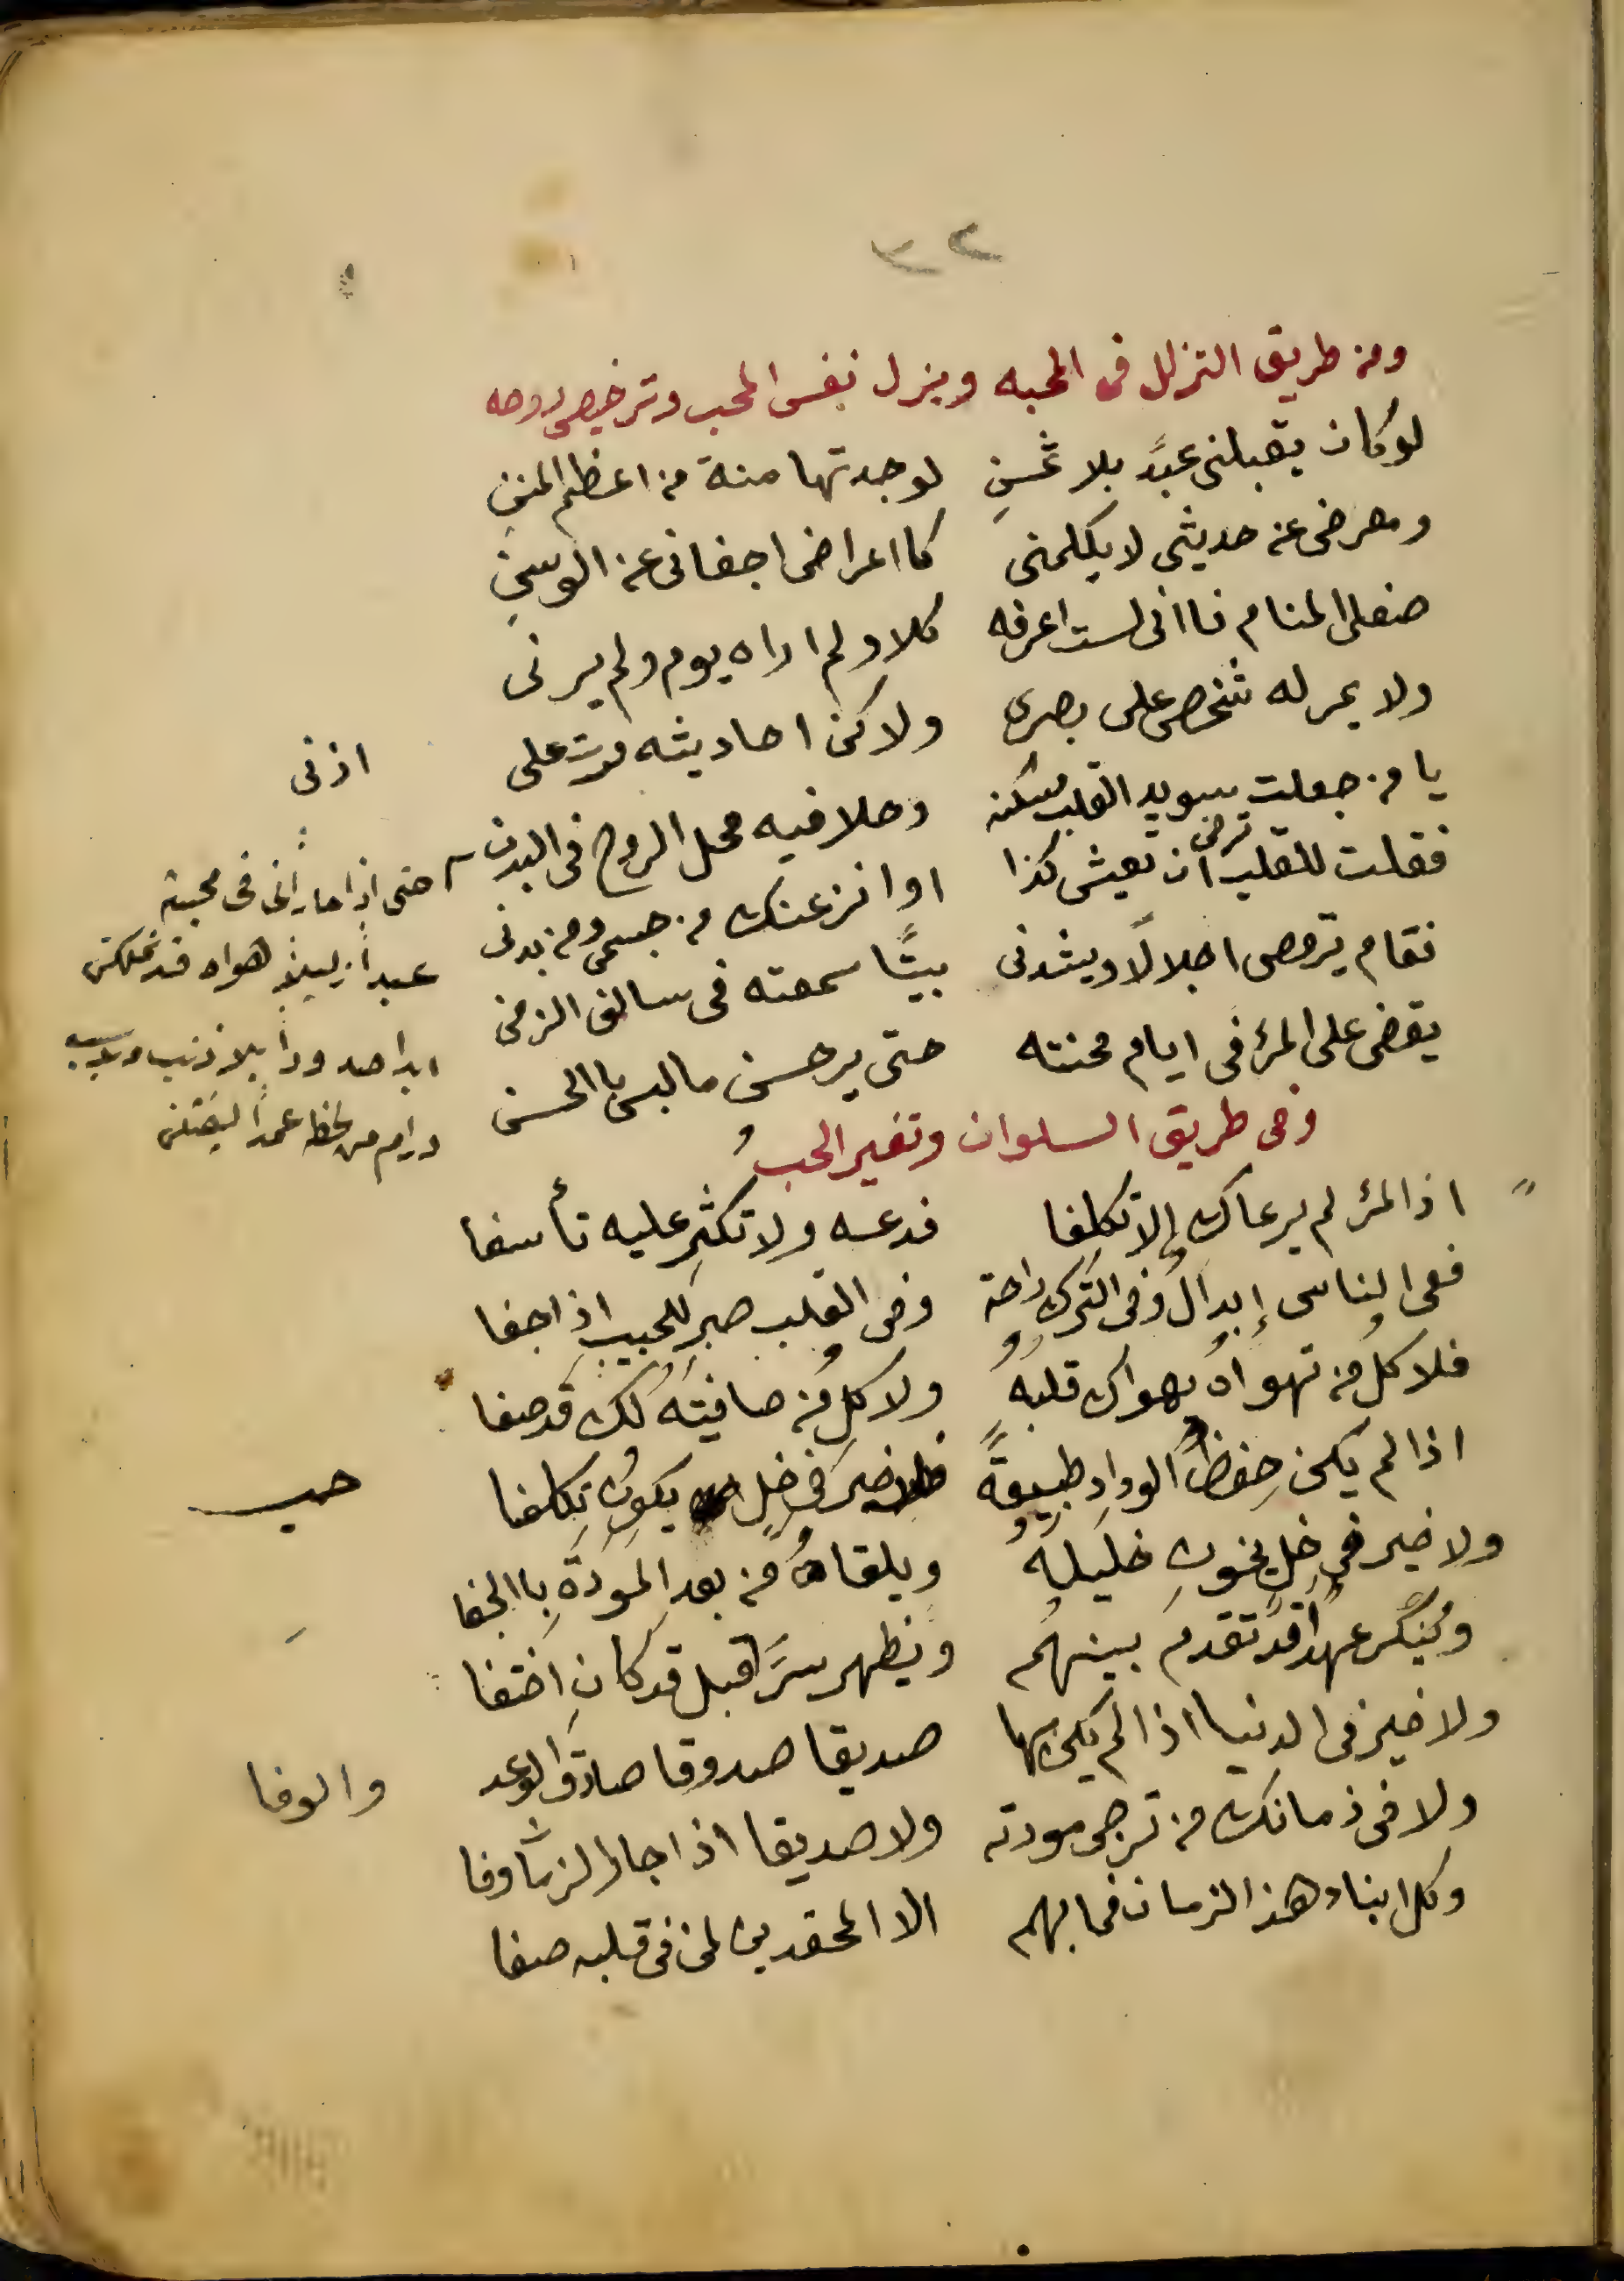 ٣٢
ومن طريق التزلل فى المحبه وبزل نفس المحب وترخيص روحه
لو كان يقبلنى عبدً بلا ثمنِ لوجدتها منة من اعظم المننِ
ومعرض عن حديثى لا يكلمنى كا اعراض اجفانى عن الوسنِ
المنام فا انى لست اعرفه كلا ولم اراه يوم ولم يرنى
ولا يمر له شخص على بصرى ولاكن احاديثه مرت على اذنى
يا من جعلت سويد القلب مسكنه وحلا فيه محل الروح فى البدن
فقلت للقلب ترضى ان تعيش كذا او انزعنك من جسمى ومن بدنى
فقام يرقص اجلالاً وينشدنى بيتًا سمعته فى سالف الزمن
يقضى على المرء فى ايام محنته حتى يرا حسن ما ليس باالحسن
حتى اذا ما رأنى فى محبته
عبداً هواه قد تملكنى
ابدا صدوداً بلا ذنب
ورام من لحظه عمداً ليقتلنى
وفى طريق السلوان وتغير الحبُ
اذا المرُ لم يرعاك إلا تكلفا فدعه ولا تكثِر عليه تأسفا
ففى الناس إبدالُ وفى التركِ راحة وفى القلب صبر للحبيبِ اذا جفا
فلا كلُ من تهواهُ يهواك قلبهُ ولا كلِ من صافيتهُ لك قد صفا
اذا لم يكن حِفظُ الودادِ طبيعةً فلا خير فى خلٍ يكون تكلفا
حب
ولا خير فى خلٍ يخونِ خليلهُ ويلقاهُ من بعدِ المودةِ باالجفا
وينكر عهداً قد تقدم بينهم ويظهر سرًا قبل قد كان اختفا
ولا خير فى الدنيا اذا لم يكن بها صديقا صدوقا صادق الوعد والوفا
ولا فى زمانك من ترجى مودته ولا صديقا اذا جار الزمان وفا
وكل ابناء هذ الزمان فما بهم الا المحقدين لمن فى قلبه صفا